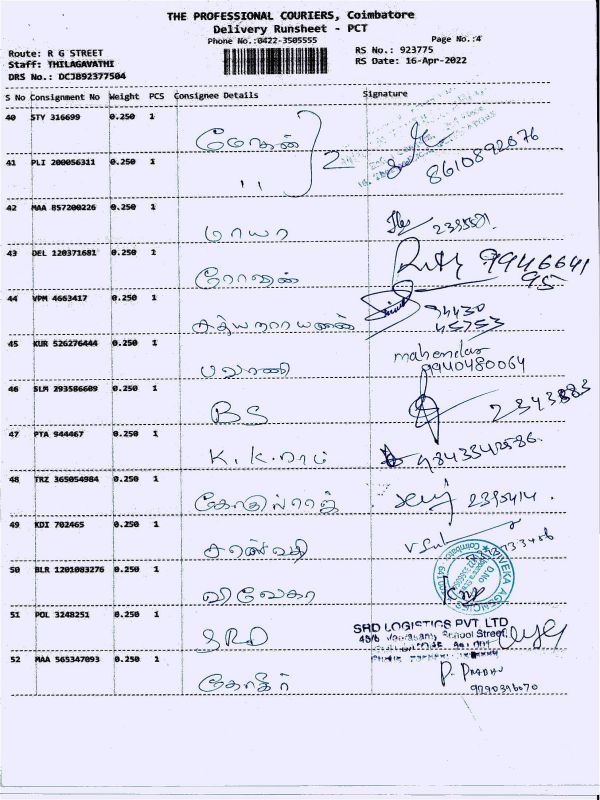 THE PROFESSIONAL COURIERS, Coimbatore
Delivery Runsheet - PCT
Phone No.:0422-3505555
Page No.:4
Route: R G STREET
RS No.: 923775
Staff: THILAGAVATHI
RS Date: 16-Apr-2022
DRS No.: DCJB92377504
S No Consignment No Weight PCS Consignee Details Signature
40 STY 316699 0.250 1 மோகன் 2 8610892076
41 PLI 200056311 0.250 1 "
42 MAA 857200226 0.250 1 மாயா
43 DEL 120371681 0.250 1 ரோஷன்
44 VPM 4663417 0.250 1 சத்யநாராயணன் 94430
45753
45 KUR 526276444 0.250 1 பழனி mahendar
9940480064
46 SLM 293586609 0.250 1 BS
47 PTA 944467 0.250 1 K.K.ராம் 9843342586
48 TRZ 365054984 0.250 1 கோகுல்ராஜ் 2395414
49 KDI 702465 0.250 1
50 BLR 1201083276 0.250 1 விவேகா
VIVEKA AGENCIES
51 POL 3248251 0.250 1 SRD
SRD LOGISTICS PVT. LTD
52 MAA 565347093 0.250 1 P. PRABHU